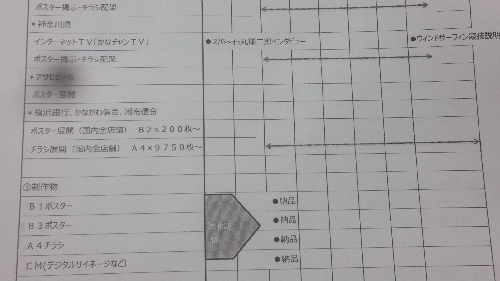 ポスター掲示・チラシ配架
*神奈川県
インターネットTV「かなチャンTV」 ●2/6~石丸雄二郎インタビュー ●ウィンドサーフィン競技説明
ポスター掲示・チラシ配架
*アサヒビール
ポスター展開
*横浜銀行、かながわ信金、湘南信金
ポスター展開(国内全店舗) B2×200枚~
チラシ展開(国内全店舗) A4×9750枚~
③制作物
B1ポスター ●納品
B3ポスター ●納品
A4チラシ ●納品
CM(デジタルサイネージなど) ●納品